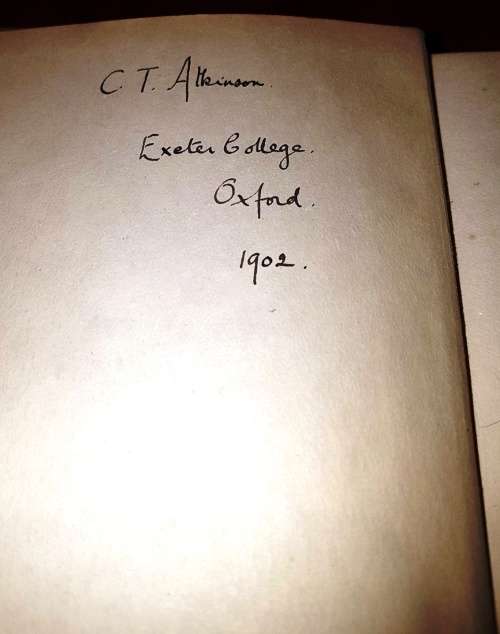 C. T. Atkinson.
Exeter College.
Oxford.
1902.